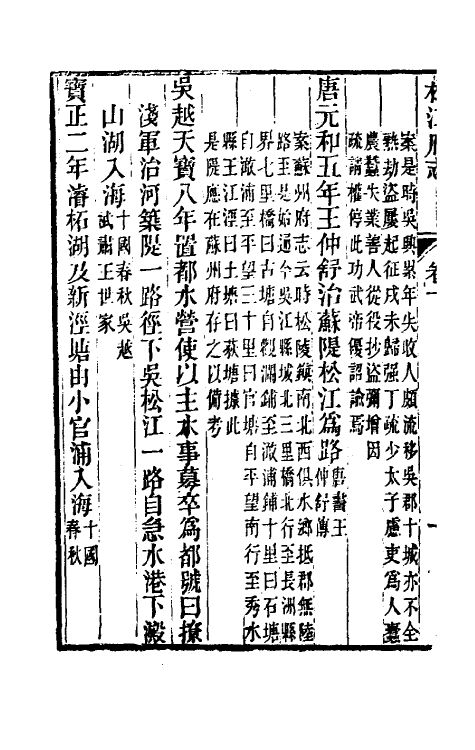 松江府志 卷十
案是時吳興累年失收人頗流移吳郡十城亦不全
熟劫盜屢起征戍未歸强丁疏少太子慮吏爲人蠹
農蠶失業善人從役抄盜彌增因
疏請權停此功武帝優詔諭焉
唐元和五年王仲舒治蘇隄松江爲路唐書王仲舒傳
案蘇州府志云時松陵鎮南北西俱水鄉抵郡無陸
路至是始通今吳江縣城北三里橋北行至長洲縣
界七里橋曰古塘自觀瀾鋪至澈浦鋪十里曰石塘
自澈浦至平望三十里曰官塘自平望南行至秀水
縣王江涇曰土塘曰荻塘據此
是隄應在蘇州府存之以備考
吳越天寶八年置都水營使以主水事募卒爲都號曰撩
淺軍治河築隄一路徑下吳松江一路自急水港下澱
山湖入海十國春秋吳越武肅王世家
寶正二年濬柘湖及新涇塘由小官浦入海十國春秋